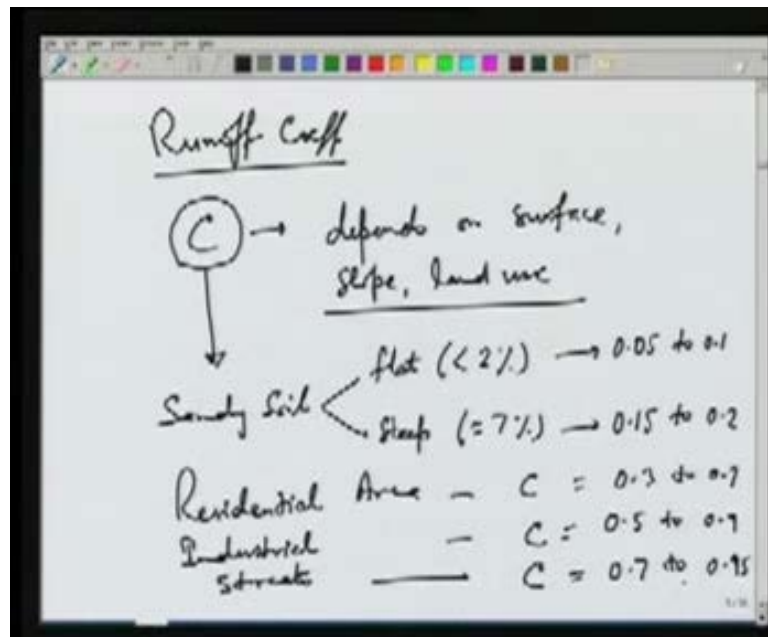 Runoff Coeff
C → depends on surface,
slope, land use
Sandy Soil
flat (< 2%) → 0.05 to 0.1
Steep (= 7%) → 0.15 to 0.2
Residential Area - C = 0.3 to 0.7
Industrial - C = 0.5 to 0.9
Streets — C = 0.7 to 0.95